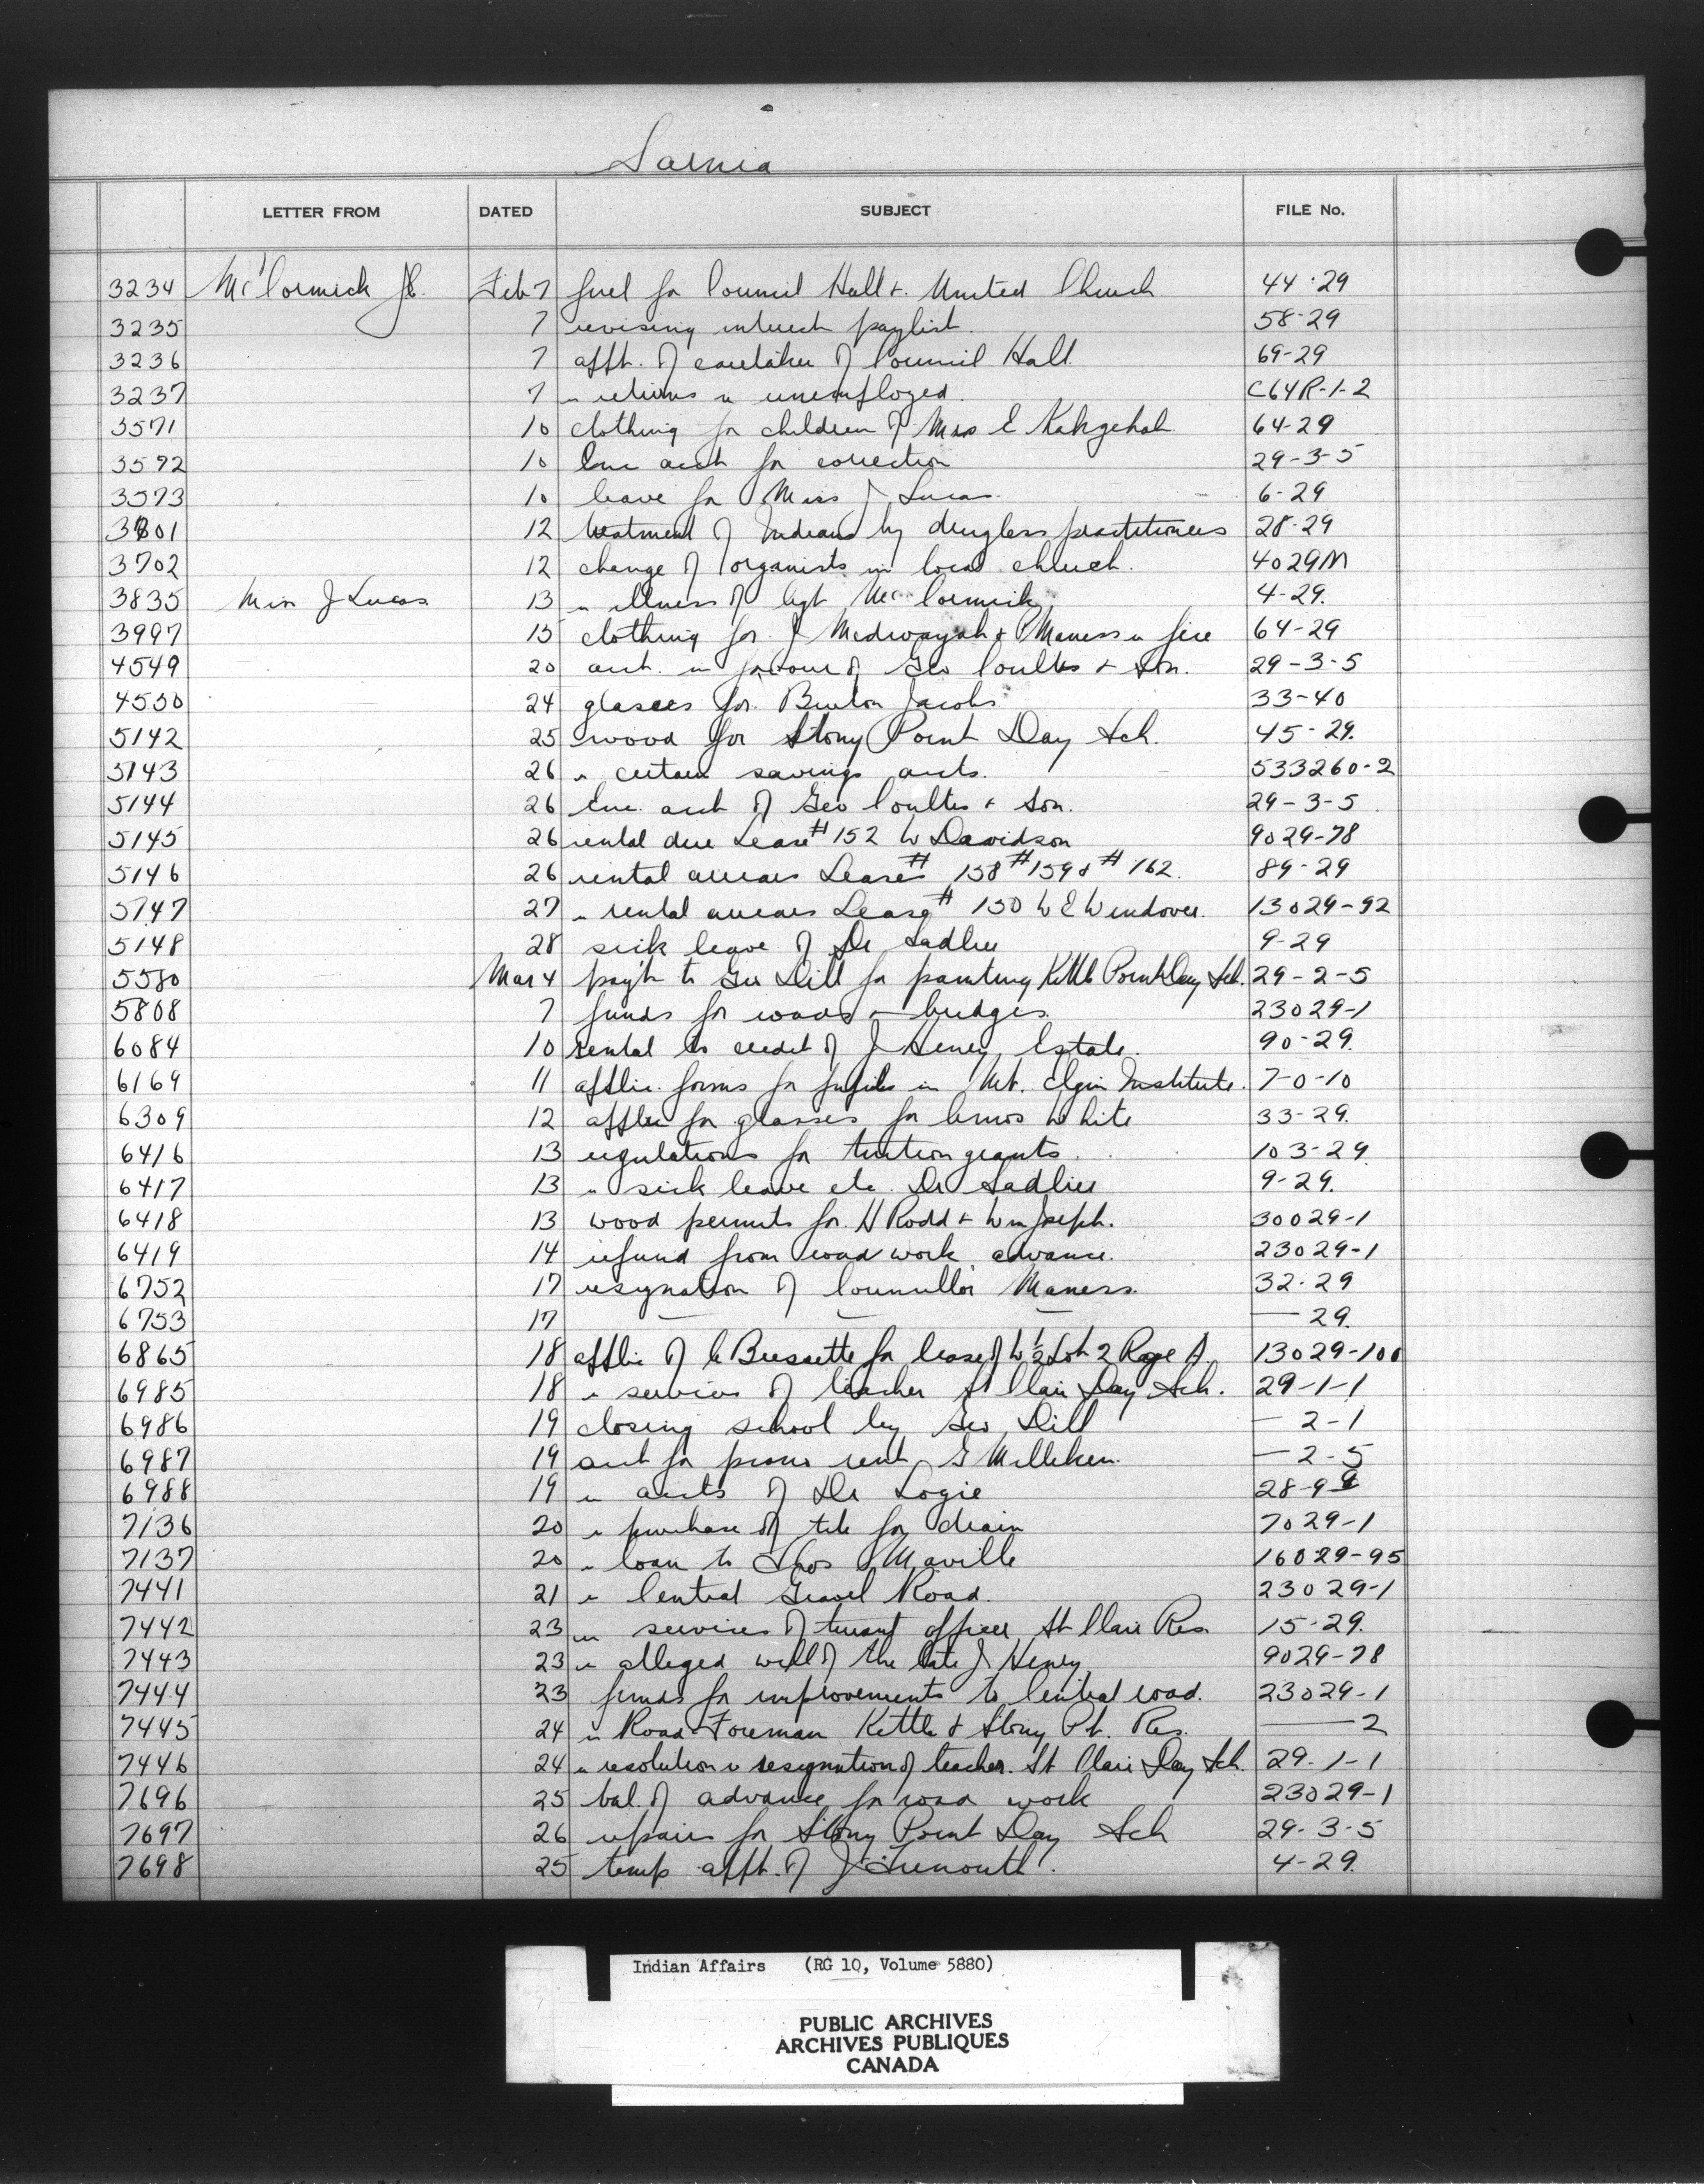 Sarnia
LETTER FROM DATED SUBJECT FILE No.
3234 McCormick Feb 7 fuel for Council Hall & United Church 44-29
3235 7 revising interest paylist. 58-29
3236 7 appt. of caretaker of Council Hall 69-29
3237 7 " returns " unemployed. C64R-1-2
3571 10 clothing for children of Mrs E Kahgehah 64-29
3572 10 Enc acct for correction 29-3-5
3573 10 leave for Miss J Lucas. 6-29
3801 12 treatment of Indians by drugless practitioners 28-29
3702 12 change of organists in local church. 4029M
3835 Miss J Lucas 13 " illness of Agt McCormick 4-29.
3997 15 clothing for J Medwayah & P Maness " fire 64-29
4549 20 acct. in favour of Geo Coultes & Son. 29-3-5
4550 24 glasses for Burton Jacobs 33-40
5142 25 wood for Stony Point Day Sch. 45-29.
5143 26 " certain savings accts. 533260-2
5144 26 Enc. acct of Geo Coultes & Son. 29-3-5
5145 26 rental due Lease #152 W Davidson 9029-78
5146 26 rental arrears Leases #158 #159 & #162. 89-29
5147 27 " rental arrears Lease #150 W E Windover. 13029-92
5148 28 sick leave of Dr Sadlier 9-29
5580 Mar 4 pay't to Geo Dill for painting Kettle Point Day Sch. 29-2-5
5808 7 funds for roads & bridges. 23029-1
6084 10 rental to credit of J Henry Estate. 90-29.
6169 11 applic. forms for pupils in Mt. Elgin Institute. 7-0-10
6309 12 applic for glasses for Amos White 33-29.
6416 13 regulations for tuition grants. 103-29
6417 13 " sick leave etc. Dr Sadlier 9-29.
6418 13 wood permits for H Rodd & Wm Joseph. 30029-1
6419 14 refund from road work advance. 23029-1
6752 17 resignation of Councillor Maness. 32-29
6753 17 — — — — 29.
6865 18 applic of C Bressette for lease of W ½ Lot 2 Rage A. 13029-100
6985 18 " services of teacher St Clair Day Sch. 29-1-1
6986 19 closing school by Geo Dill — 2-1
6987 19 acct for piano rent G Milliken. — 2-5
6988 19 " accts of Dr Logie
7136 20 " purchase of tile for drain 7029-1
7137 20 " loan to Thos Maville 16029-95
7441 21 " Central Gravel Road. 23029-1
7442 23 " services of truant officer St Clair Res. 15-29.
7443 23 " alleged will of the late J Henry 9029-78
7444 23 funds for improvements to Central road. 23029-1
7445 24 " Road Foreman Kettle & Stony Pt. Res. — 2
7446 24 " resolution " resignation of teacher. St Clair Day Sch. 29-1-1
7696 25 bal. of advance for road work 23029-1
7697 26 repairs for Stony Point Day Sch 29-3-5
7698 25 temp appt. of J Tremouth. 4-29.
Indian Affairs (RG 10, Volume 5880)
PUBLIC ARCHIVES
ARCHIVES PUBLIQUES
CANADA